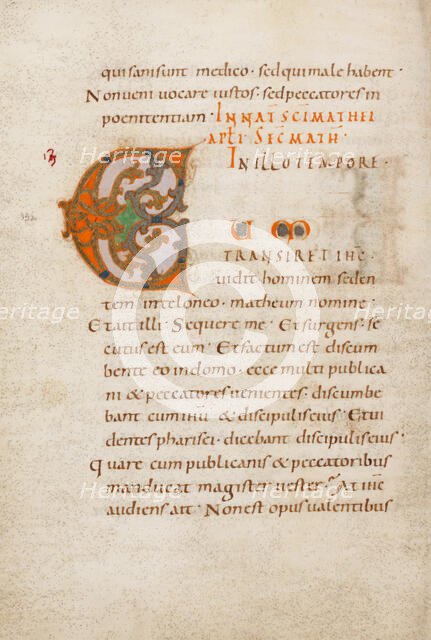 qui sani sunt medico · sed qui male habent ·
Non veni vocare iustos · sed peccatores in
poenitentiam · IN NAT̄ SCI MATHEI
APŁI · SEC̄ MATH̄ ·
IN ILLO TEMPORE ·
C UM
TRANSIRET IHC̄
vidit hominem seden
tem in teloneo · matheum nomine ·
Et ait illi · Sequere me · Et surgens · se
cutus est eum · Et factum est discum
bente eo in domo · ecce multi publica
ni & peccatores venientes · discumbe
bant cum ihū & discipulis eius · Et vi
dentes pharisei · dicebant discipulis eius ·
Quare cum publicanis & peccatoribus
manducat magister vester · At ihc̄
audiens ait · Non est opus valentibus
Heritage